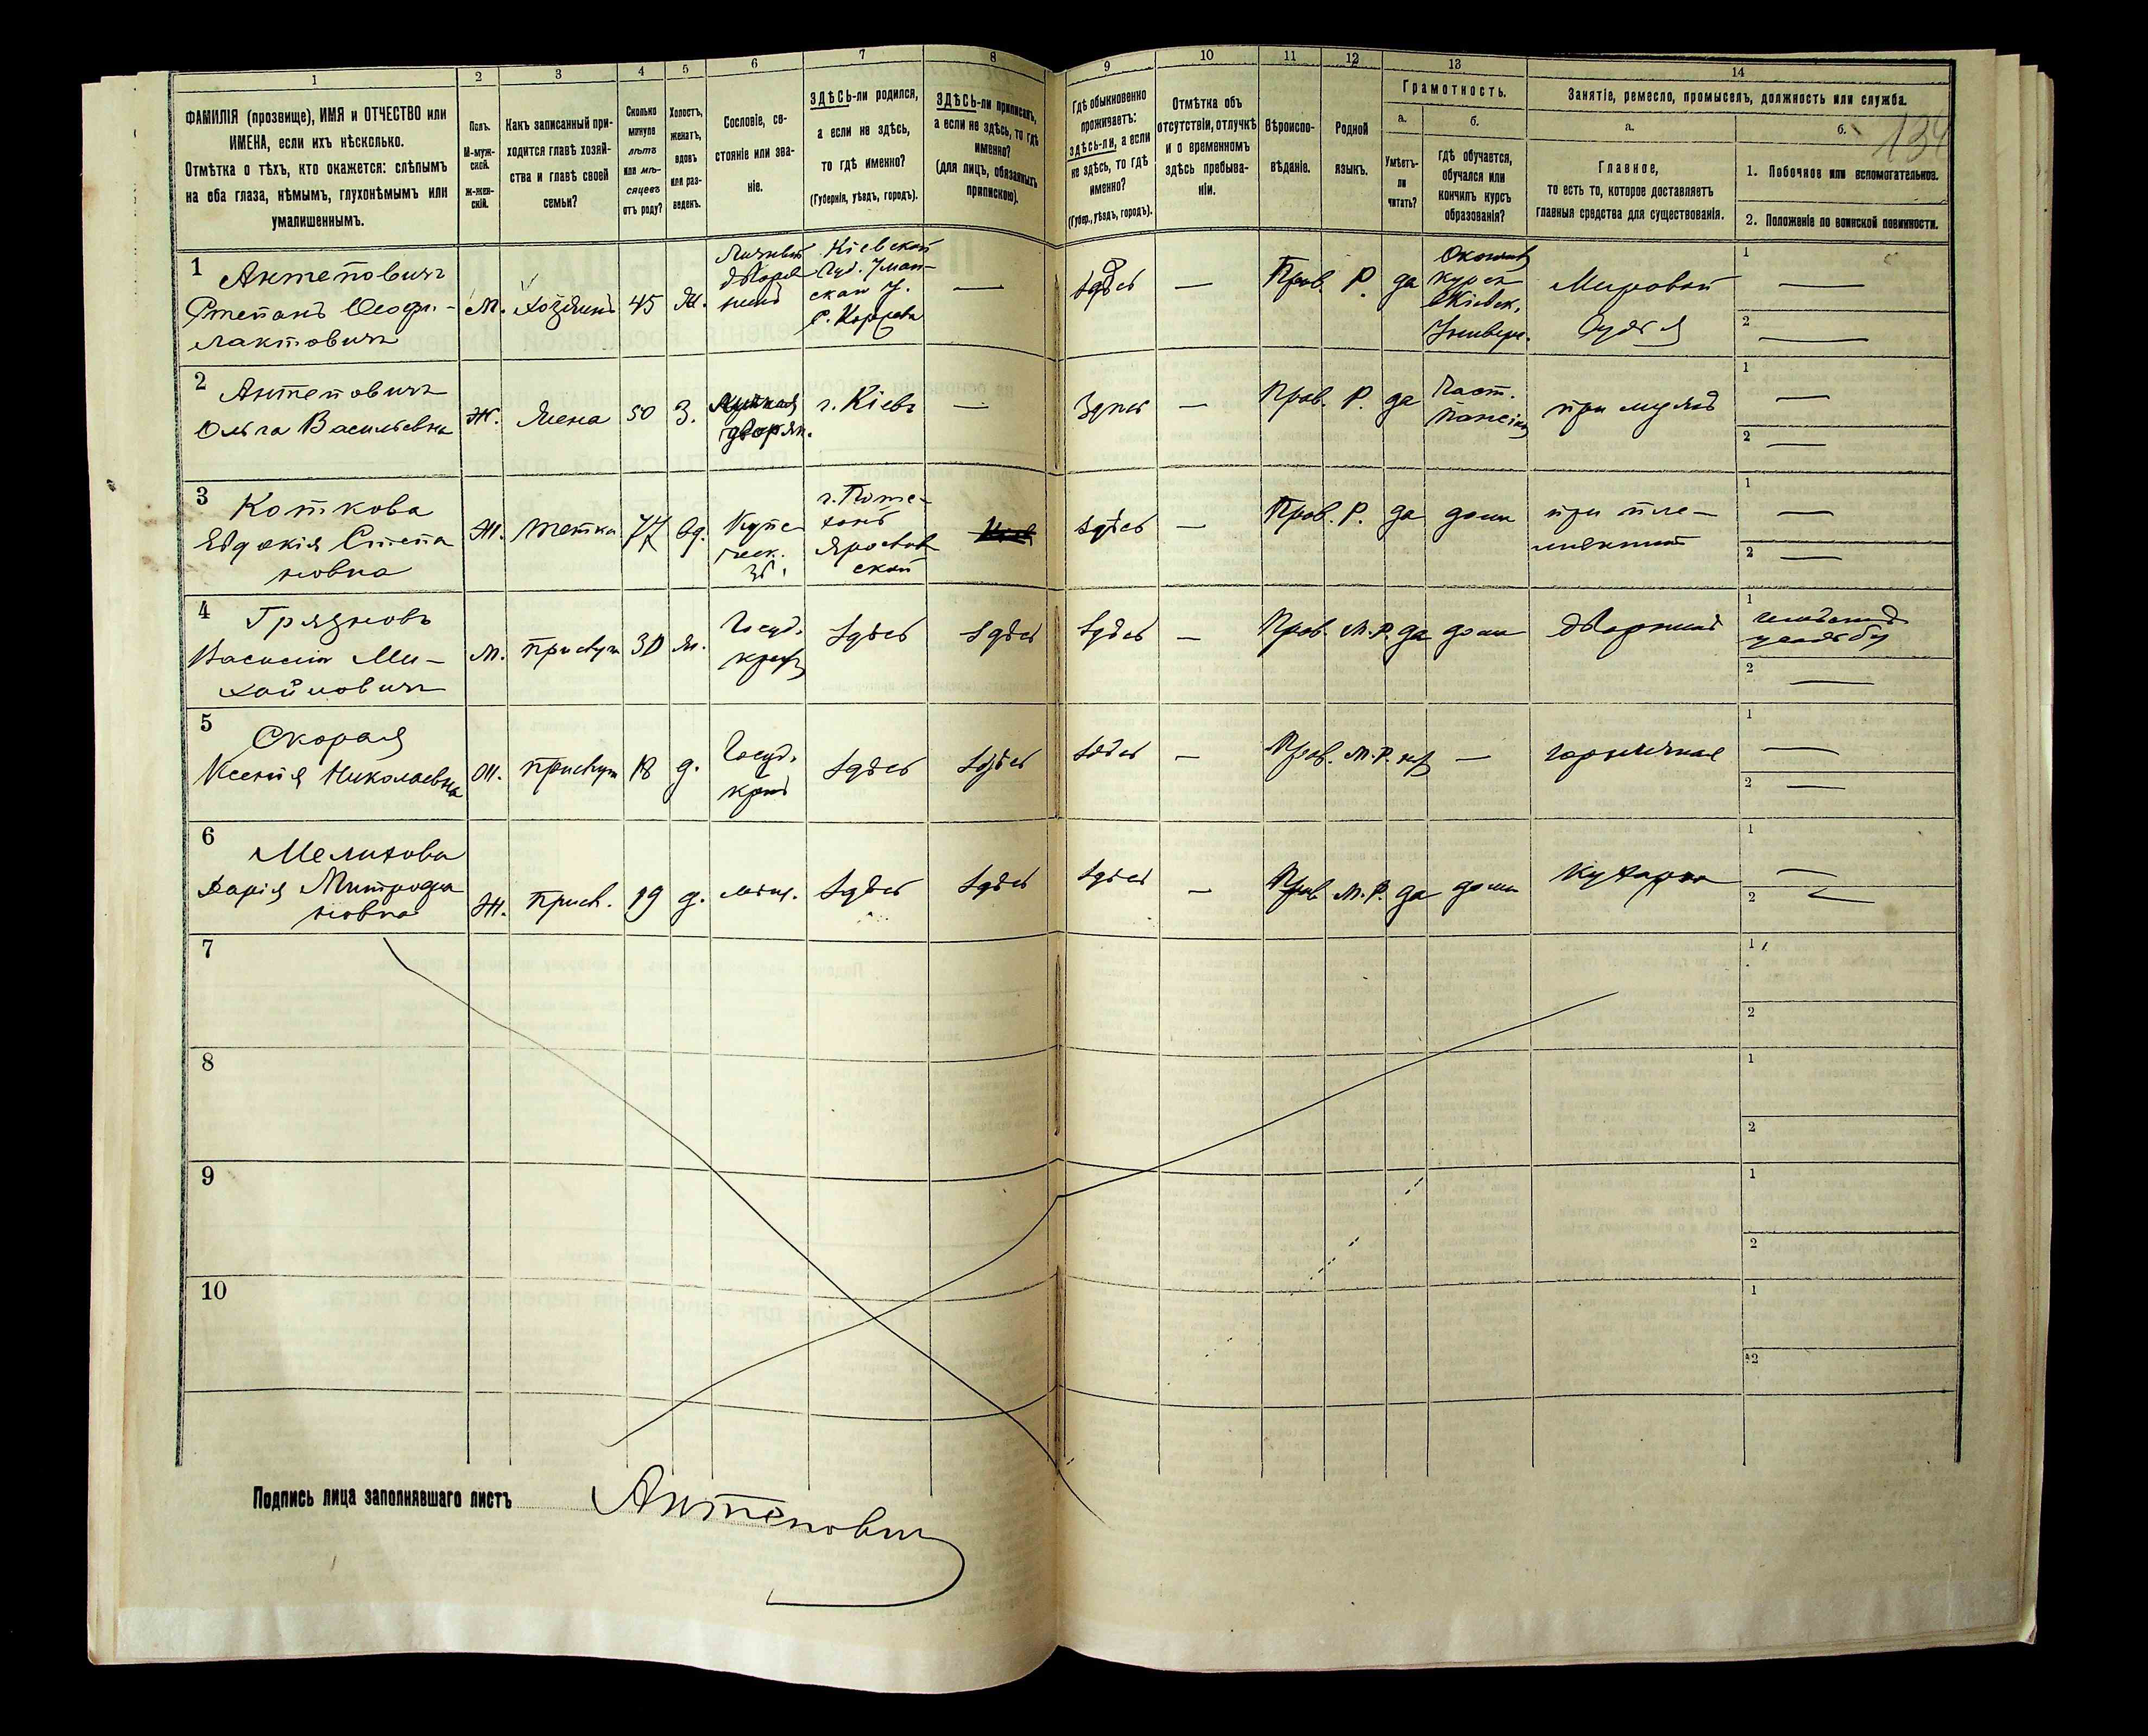 1 2 3 4 5 6 7 8 9 10 11 12 13 14
ФАМИЛІЯ (прозвище), ИМЯ и ОТЧЕСТВО или
ИМЕНА, если ихъ нѣсколько.
Отмѣтка о тѣхъ, кто окажется: слѣпымъ
на оба глаза, нѣмымъ, глухонѣмымъ или
умалишеннымъ.
Полъ.
М-муж-
ской.
Ж-жен-
скій.
Какъ записанный при-
ходится главѣ хозяй-
ства и главѣ своей
семьи?
Сколько
минуло
лѣтъ
или мѣ-
сяцевъ
отъ роду?
Холостъ,
женатъ,
вдовъ
или раз-
веденъ.
Сословіе, со-
стояніе или зва-
ніе.
ЗДѢСЬ-ли родился,
а если не здѣсь,
то гдѣ именно?
(Губернія, уѣздъ, городъ).
ЗДѢСЬ-ли приписанъ,
а если не здѣсь, то гдѣ
именно?
(для лицъ, обязанныхъ
припискою).
Гдѣ обыкновенно
проживаетъ:
здѣсь-ли, а если
не здѣсь, то гдѣ
именно?
(Губер., уѣздъ, городъ).
Отмѣтка объ
отсутствіи, отлучкѣ
и о временномъ
здѣсь пребыва-
ніи.
Вѣроиспо-
вѣданіе.
Родной
языкъ.
Грамотность.
а.
Умѣетъ-
ли
читать?
б.
Гдѣ обучается,
обучался или
кончилъ курсъ
образованія?
Занятіе, ремесло, промыселъ, должность или служба.
а.
Главное,
то есть то, которое доставляетъ
главныя средства для существованія.
б.
134
1. Побочное или вспомогательное.
2. Положеніе по воинской повинности.
1 Антеповичъ
Степанъ Ѳеофи-
лактовичъ
М.
Хозяинъ
45
Ж.
Кіевской
Губ. Уман-
скаго У.
—
здѣсь
—
Прав.
Р.
да
курсъ
Кіевск.
Универс.
Мировой
Судья
1 —
2 —
2 Антеповичъ
Ольга Васильевна
Ж.
Жена
50
З.
дворян.
г. Кіевъ
—
Здѣсь
—
Прав.
Р.
да
Част.
Пансіонъ
при мужѣ
1 —
2 —
3 Коткова
Евдокія Степа
новна
Ж.
тетка
77
вд.
Купе-
ческ.
зв.
г. Поше-
хонь
Ярослав
ской
здѣсь
—
Прав.
Р.
да
дома
при пле-
мянникѣ
1 —
2 —
4 Грязновъ
Василій Ми-
хайловичъ
М.
прислуга
30
Ж.
Госуд.
крест
здѣсь
здѣсь
здѣсь
—
Прав.
М.Р.
да
дома
дворникъ
1
усадьбу
2 —
5 Скорая
Ксенія Николаевна
Ж.
прислуга
18
д.
Госуд.
крест
здѣсь
здѣсь
здѣсь
—
Прав.
М.Р.
нѣтъ
—
горничная
1 —
2 —
6 Мелихова
Дарія Митрофа
новна
Ж.
присл.
19
д.
мѣщ.
здѣсь
здѣсь
здѣсь
—
Прав
М.Р.
да
дома
Кухарка
1 —
2 —
7 1 2
8 1 2
9 1 2
10 1 2
Подпись лица заполнявшаго листъ Антепович